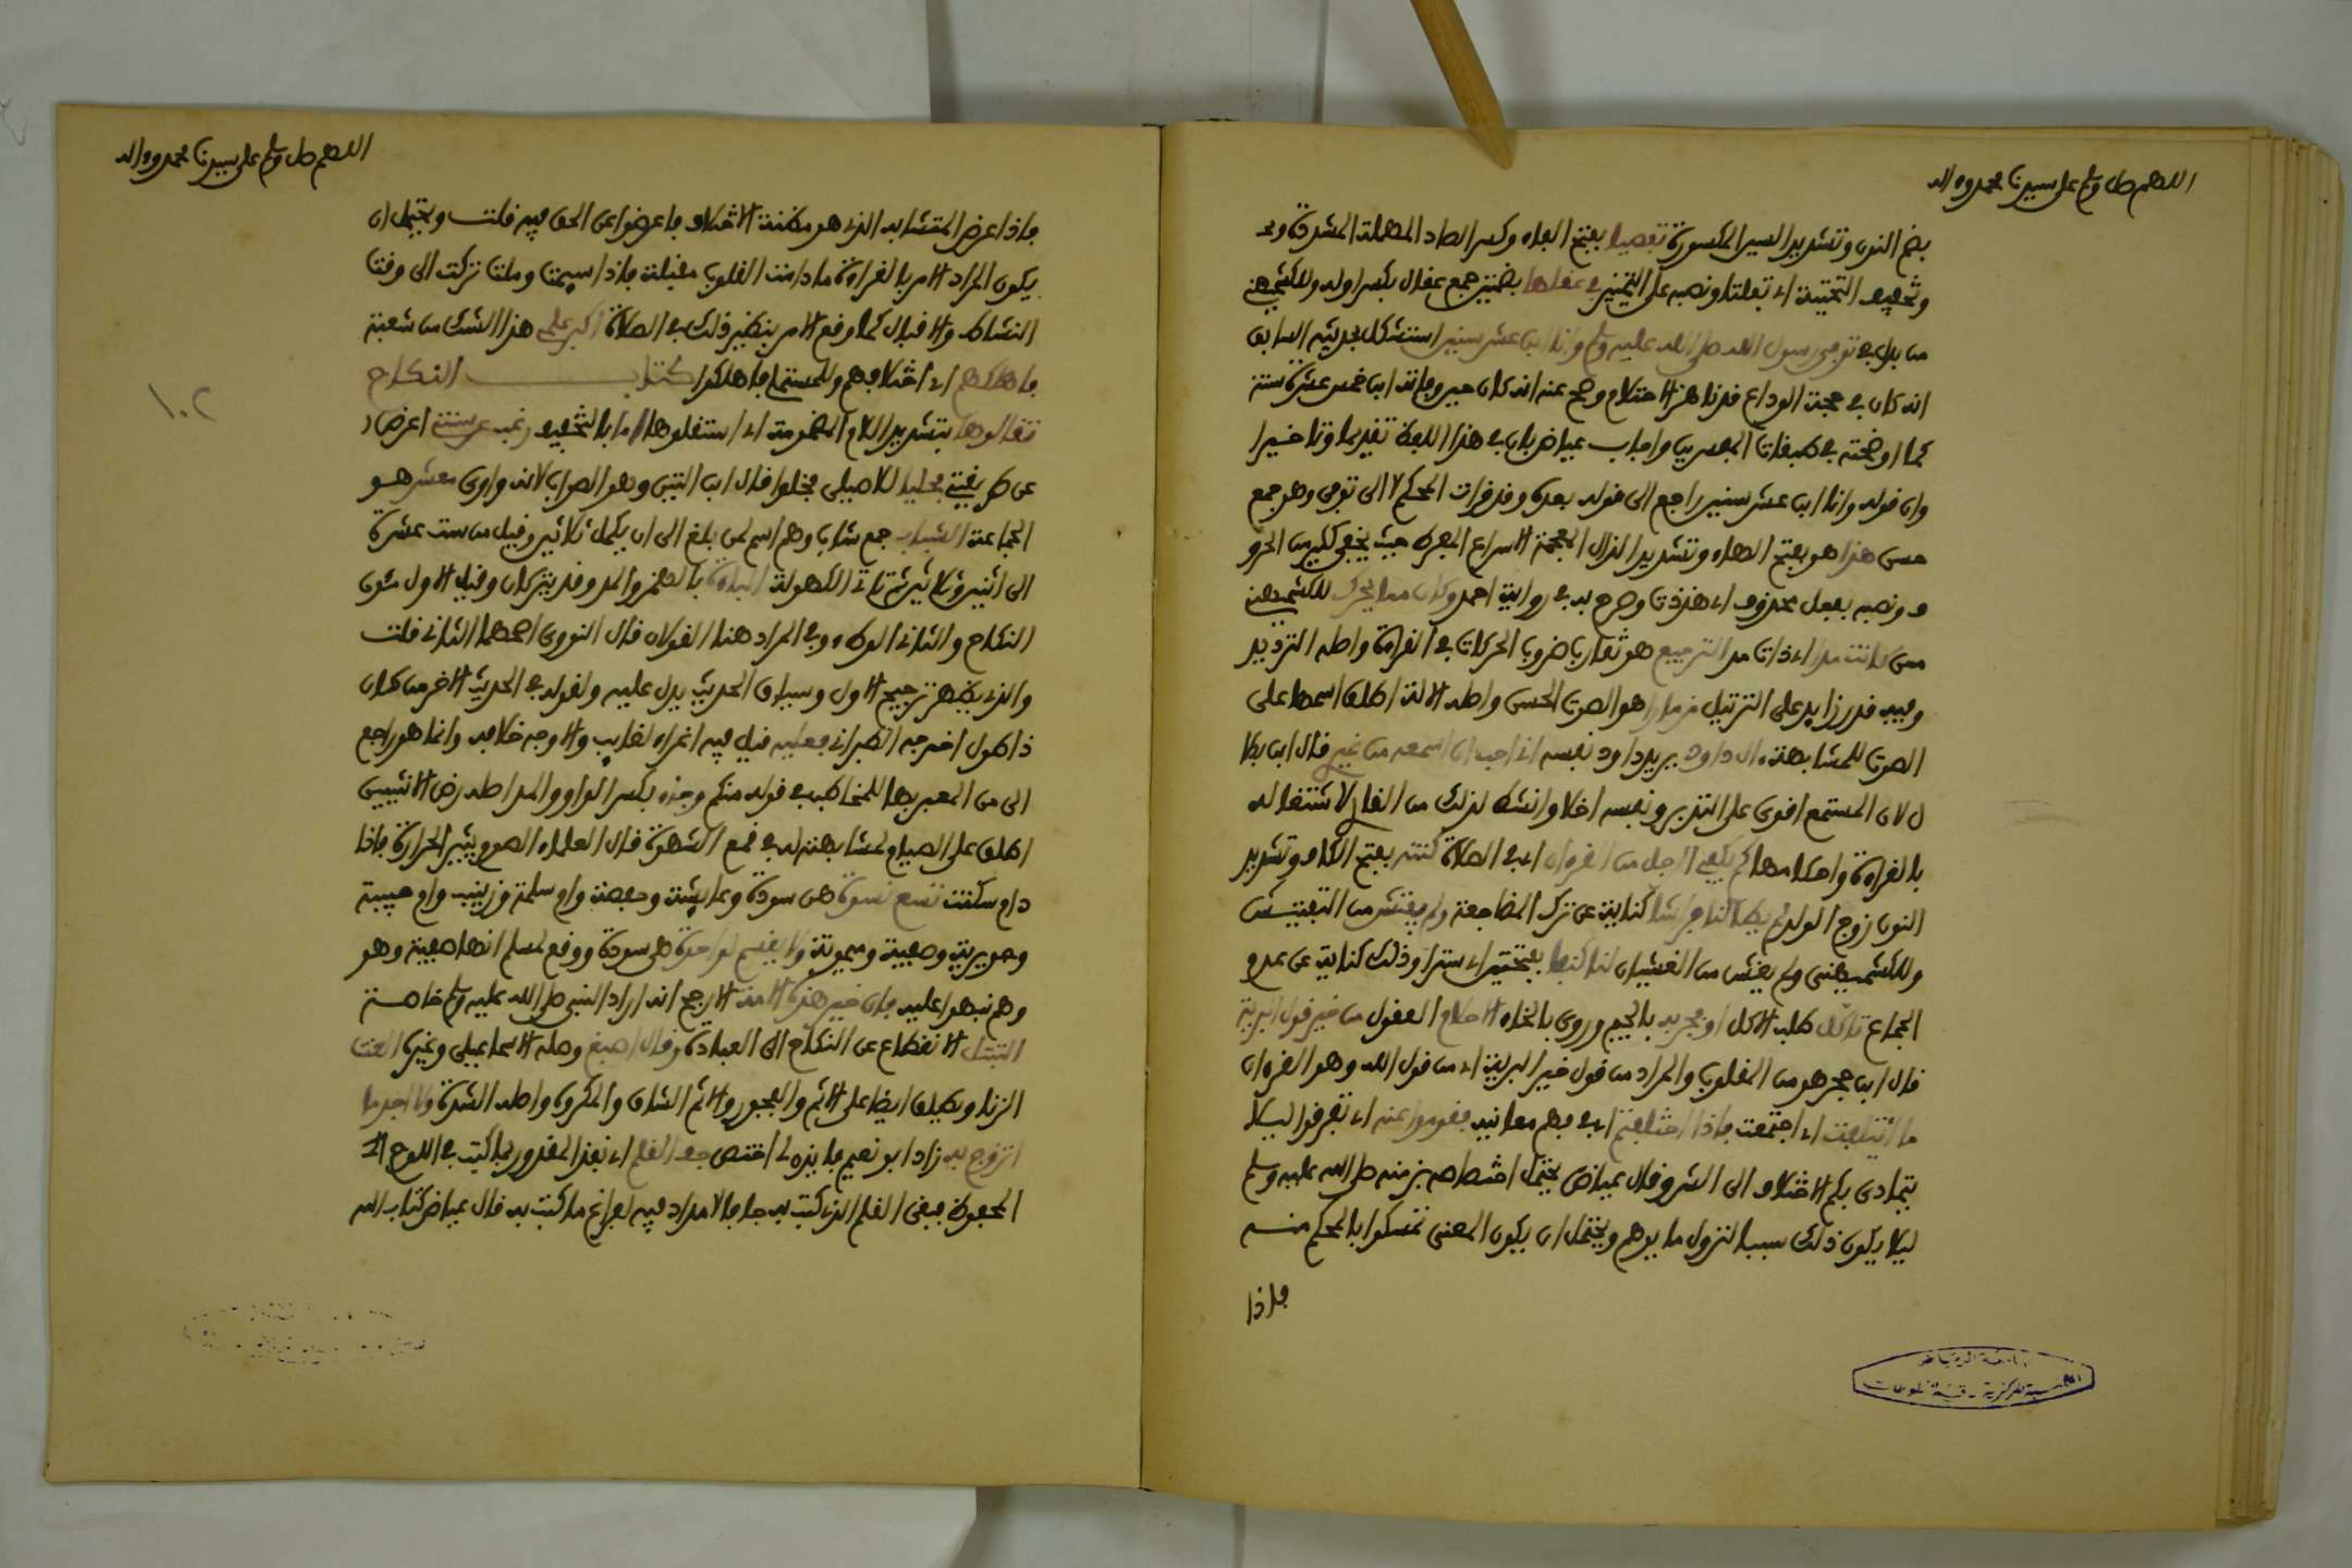 اللهم صل وسلم على سيدنا محمد وءاله
بضم النون وتشديد السين المكسورة تفصيا بفتح الفاء وكسر الصاد المهملة المشددة وتحـ
وتخفيف التحتية اي تفلتا ونصبه على التمييز في عقلها بضمتين جمع عقال بكسر اوله وللكشميهني
من بدل في توفي رسول الله صلى الله عليه وسلم وانا ابن عشر سنين استشكل بحديثه السابق
انه كان في حجة الوداع قد ناهز الاحتلام وصح عنه انه كان حين وفاته ابن خمس عشرة سنة
كما اوضحته في طبقات المفسرين واجاب عياض بان في هذا اللفظ تقديما وتاخيرا
وان قوله وانا ابن عشر سنين راجع الى قوله بعده وقد قرات المحكم لا الى توفي وهو جمع
حسن هذا هو بفتح الهاء وتشديد الذال المعجمة الاسراع المفرط حيث يخفى كثير من الحرو
ف ونصبه بفعل محذوف اي هذذت وصرح به في رواية احمد وكان مما يحرك للكشميهني
ممن كانت مدا اي ذات مد الترجيع هو تقارب ضروب الحركات في القراءة واصله الترديد
وفيه قدر زايد على الترتيل مزمارا هو الصوت الحسن واصله الالة اطلق اسمها على
الصوت للمشابهة ءال داود يريد داود نفسه اني احب ان اسمعه من غيري قال ابن بطا
ل لان المستمع اقوى على التدبر ونفسه اخلا وانشط لذلك من القاري لاشتغاله
بالقراءة واحكامها كم يكفي الرجل من القرءان اي في الصلاة كنته بفتح الكاف وتشديد
النون زوج الولد لم يطا لنا فراشا كناية عن ترك المضاجعة ولم يفتش من التفتيش
وللكشميهني ولم يغش من الغشيان لنا كنفا بفتحتين اي سترا وذلك كناية عن عدم
الجماع تاكل طلب الاكل او فجر به بالجيم وروى بالخاء الاحلام العقول من خير قول البرية
قال ابن حجر هو من المقلوب والمراد من قول خير البرية اي من قول الله وهو القرءان
ما ائتلفت اي اجتمعت فاذا اختلفتم اي في فهم معانيه فقوموا عنه اي تفرقوا ليلا
يتمادى بكم الاختلاف الى الشر وقال عياض يحتمل اختصاصه بزمنه صلى الله عليه وسلم
ليلا يكون ذلك سببا لنزول ما يوهم ويحتمل ان يكون المعنى تمسكوا بالمحكم منه
فاذا
اللهم صل وسلم على سيدنا محمد وءاله
فاذا عرض المتشابه الذي هو مظنة الاختلاف فاعرضوا عن الحق فيه قلت ويحتمل ان
يكون المراد الامر بالقراءة ما دامت القلوب مقبلة فاذا سيمت وملت تركت الى وقت
النشاط والاقبال كما وقع الامر بنظير ذلك في الصلاة اكبر علمي هذا الشك من شعبة
فاهلكهم اي اختلافهم وللمستملي فاهلكوا كتاب النكاح
تقالوها بتشديد اللام المضمومة اي استقلوها اما بالتخفيف رغب عن سنتي اعرض ا
عن طريقتي فخليا للاصيلي فخلوا قال ابن التين وهو الصواب لانه واوى معشر هو
الجماعة الشباب جمع شاب وهم اسم لمن بلغ الى ان يكمل ثلاثين وقيل من ست عشرة
الى اثنين وثلاثين ثم تاتي الكهولة الباءة بالهمز والمد وقد يتركان وقيل الاول مئون
النكاح والثاني الوطء وفي المراد هنا القولان قال النووي اصحهما الثاني قلت
والذي يظهر ترجيح الاول وسياق الحديث يدل عليه ولقوله في الحديث الاخر من كان
ذا طول اخرجه الطبراني فعليه قيل فيه اغراء لغايب والاوجه خلافه وانما هو راجع
الى من المعبر بها للمخاطب في قوله منكم وجاء بكسر الواو والمد اصله رض الانثيين
اطلق على الصيام لمشابهته له في قمع الشهوة قال العلماء الصوم يثير الحرارة فاذا
دام سكنت تسع نسوة هن سودة وعايشة وحفصة وام سلمة وزينب وام حبيبة
وجويرية وصفية وميمونة ولا يقسم لواحدة هى سودة ووقع لمسلم انها صفية وهو
وهم نبهوا عليه فان خير هذه الامة الارجح انه اراد النبي صلى الله عليه وسلم خاصة
التبتل الانقطاع عن النكاح الى العبادة وقال اصبغ وصله الاسماعيلي وغيره العنت
الزنا ويطلق ايضا على الاثم والفجور والاثم الشاق والمكروه واصله الشدة ولا اجد ما
اتزوج به زاد ابو نعيم فايذن لي اختص جف القلم اي نفذ المقدور بما كتب في اللوح الـ
المحفوظ فبقى القلم الذي كتب به جافا لا مداد فيه لفراغ ما كتب به قال عياض كتاب الله
١٠٢
جامعة الرياض
المكتبة المركزية - قسم المخطوطات